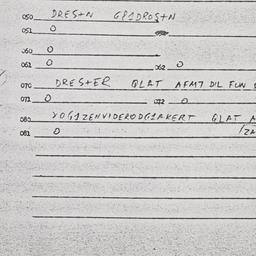 050 DRES+N GP1DROS+N
051 0
060 0
061 0 062 0
070 DRES+ER GLAT AFM7 D'L FUN
071 0 072 0
080 VOG1ZENVIDERODG1AKERT GLAT
081 0 /ZA